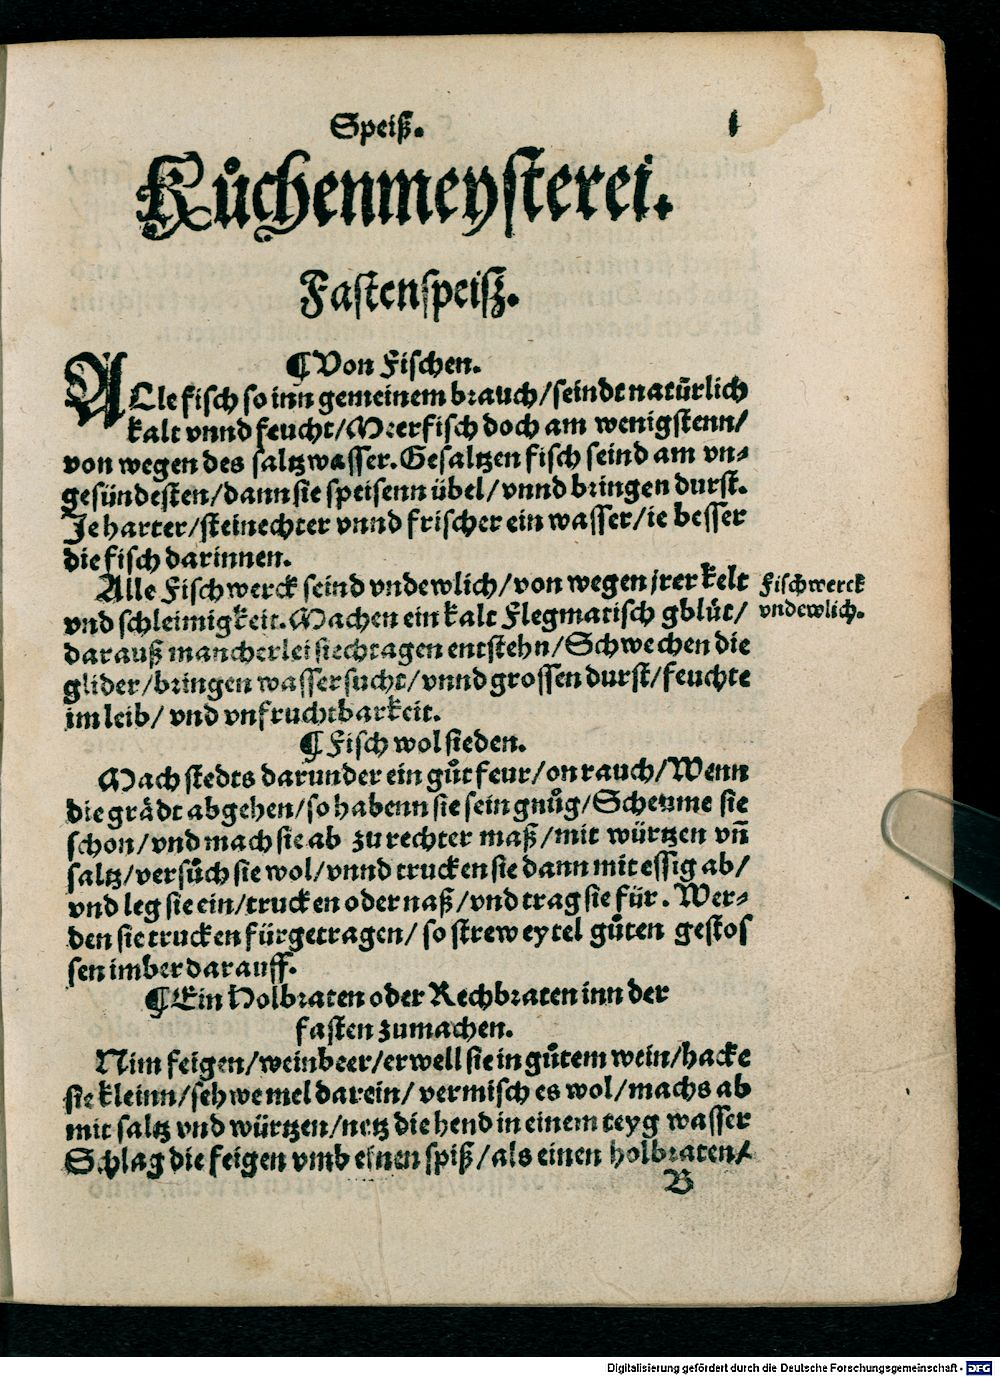 Speiß. 1
Kůchenmeysterei.
Fastenspeisz.
¶ Von Fischen.
ALle fisch so inn gemeinem brauch/seindt natürlich
kalt vnnd feucht/Meerfisch doch am wenigstenn/
von wegen des saltzwasser. Gesaltzen fisch seind am vn⸗
gesündesten/dann sie speisenn übel/vnnd bringen durst.
Je harter/steinechter vnnd frischer ein wasser/ie besser
die fisch darinnen.
Alle Fischwerck seind vndewlich/von wegen jrer kelt
vnd schleimigkeit. Machen ein kalt Flegmatisch gblüt/
darauß mancherlei siechtagen entstehn/Schwechen die
glider/bringen wassersucht/vnnd grossen durst/feuchte
im leib/ vnd vnfruchtbarkeit.
Fischwerck
vndewlich.
¶ Fisch wol sieden.
Mach stedts darunder ein gůt feur/on rauch/Wenn
die grädt abgehen/so habenn sie sein gnůg/Scheume sie
schon/vnd mach sie ab zu rechter maß/mit würtzen vn̄
saltz/versůch sie wol/vnnd trucken sie dann mit essig ab/
vnd leg sie ein/trucken oder naß/vnd trag sie für. Wer⸗
den sie trucken fürgetragen/ so strew eytel gůten gestos
sen imber darauff.
¶ Ein Holbraten oder Rechbraten inn der
fasten zumachen.
Nim feigen/weinbeer/erwell sie in gůtem wein/hacke
sie kleinn/sehwemel darein/ vermisch es wol/machs ab
mit saltz vnd würtzen/netz die hend in einem teyg wasser
Schlag die feigen vmb einen spiß/als einen holbraten/
B
Digitalisierung gefördert durch die Deutsche Forschungsgemeinschaft - DFG